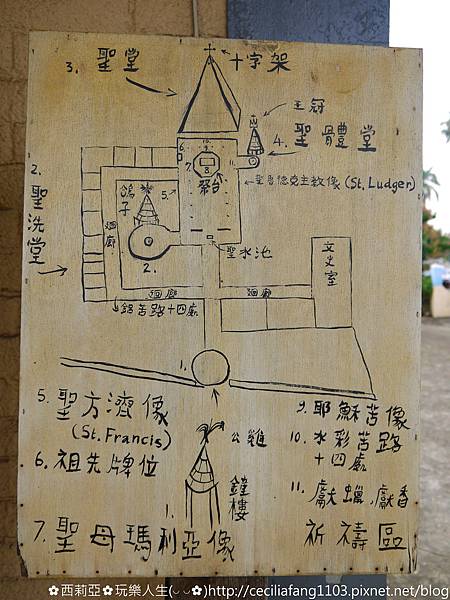 十字架
3. 聖堂
王冠
4. 聖體堂
10.
6.
9.
7.
8
11.
5.
祭台
聖鹿德克主教像 (St. Ludger)
2. 聖洗堂
鴿子
2.
迴廊
聖水池
文史室
迴廊
迴廊
鋁苦路十四處
1.
5. 聖方濟像
(St. Francis)
6. 祖先牌位
7. 聖母瑪利亞像
公雞
1. 鐘樓
9. 耶穌苦像
10. 水彩苦路
十四處
11. 獻蠟、獻香
祈禱區
✿西莉亞✿玩樂人生(◡‿◡✿)http://ceciliafang1103.pixnet.net/blog